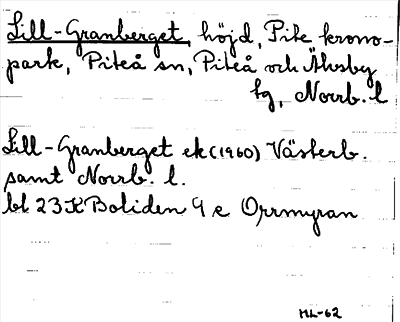 Lill-Granberget, höjd, Pite krono-
park, Piteå sn, Piteå och Älvsby
tg, Norrb. l
Lill-Granberget ek (1960) Västerb.
samt Norrb. l.
bl 23K Boliden 9 e Orrmyran
ML-62